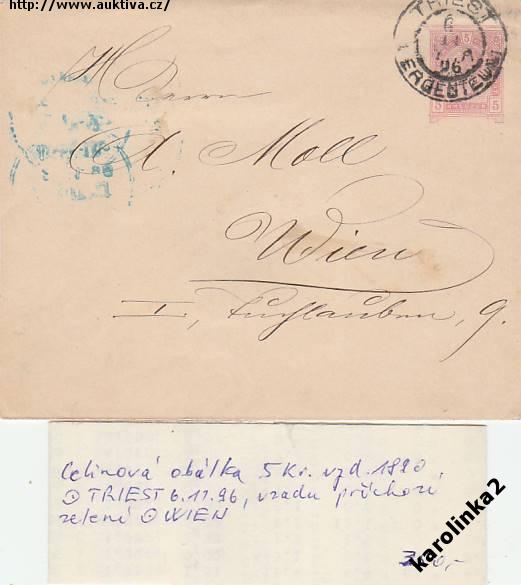 http://www.auktiva.cz/
TRIEST
6
11
96
5 5
5 KREUZER 5
Herrn
A. Moll
Wien
I, Tuchlauben, 9.
Celinová obálka 5 Kr. vyd. 1890,
⊙ TRIEST 6.11.96, vzadu příchozí
zelené ⊙ WIEN
karolinka2